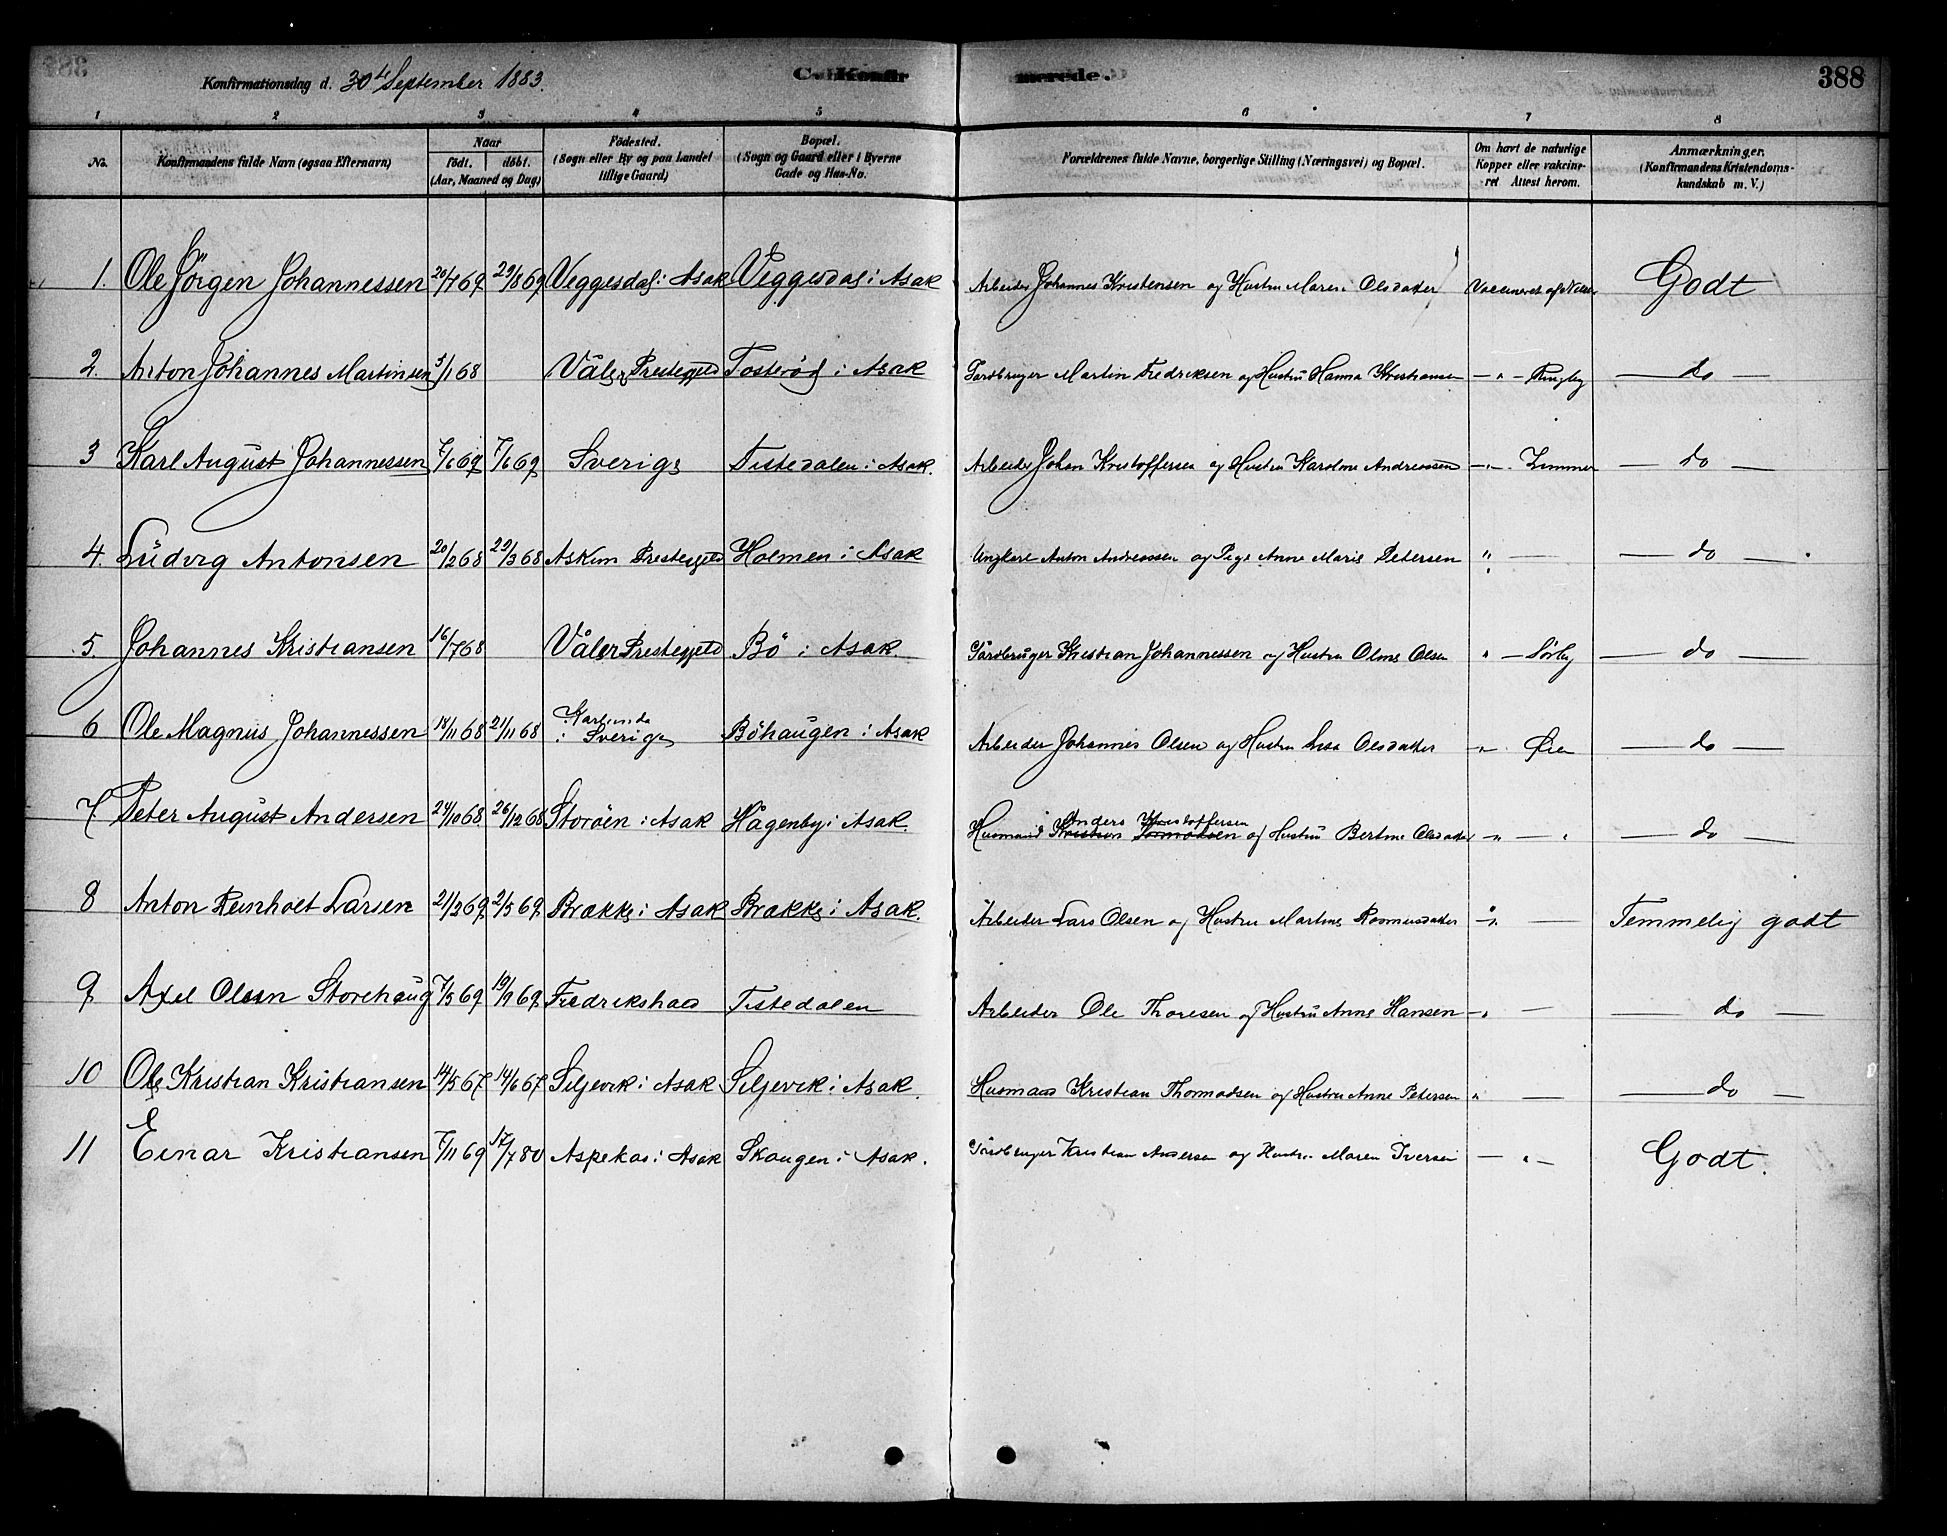 Konfirmationsdag d. 30te September 1883.
C. Konfir merede. 388
1 2 3 4 5 6 7 8
No. Konfirmandens fulde Navn (ogsaa Efternavn) Naar födt. döbt. (Aar, Maaned og Dag) Födested. (Sogn eller By og paa Landet tillige Gaard) Bopæl. (Sogn og Gaard eller i Byerne Gade og Hus-No. Forældrenes fulde Navne, borgerlige Stilling (Næringsvei) og Bopæl. Om havt de naturlige Kopper eller vakcineret Attest herom. Anmærkninger. (Konfirmandens Kristendomskundskab m. V.)
1. Ole Jörgen Johannessen 20/7 69 29/8 69 Veggesdal i Asak Veggesdal i Asak Arbeider Johannes Kristensen og Hustru Maren Olsdatter Vaccineret af Godt
2. Anton Johannes Martinsen 5/1 68 Våler Prestegjeld Tosterød i Asak Gårdbruger Martin Fredriksen og Hustrü Hanna Kristiansen — " — Ringby — do —
3 Karl August Johannessen 7/6 69 7/6 69 Sverige Tistedalen i Asak. Arbeider Johan Kristoffersen og Hustru Karoline Andreassen — " — Zimmer — do —
4. Lüdvig Antonsen 20/2 68 29/3 68 Askim Prestegjeld Holmen i Asak Ungkarl Anton Andreassen og Pige Anne Marie Petersen " — — do —
5. Johannes Kristiansen 16/7 68 Våler Prestegjeld Bö i Asak Gårdbruger Kristian Johannessen og Hustru Oline Olsen " — Sörby — do —
6 Ole Magnus Johannessen 18/11 68 21/11 68 i Sverige Böhaugen i Asak Arbeider Johannes Olsen og Hustru Lisa Olsdatter — " — Øien — do —
7 Peter August Andersen 24/10 68 26/12 68 Storöen i Asak Hågenby i Asak. Husmand Kristian Tormodsen Anders Kristoffersen og Hustrü Bertine Olsdatter — " — " — do —
8 Anton Reinholt Larsen 21/2 69 2/5 69 Brække i Asak Brække i Asak. Arbeider Lars Olsen og Hustru Martine Rasmusdatter — " — Temmelig godt
9 Axel Olsen Storehaug 7/5 69 19/9 69 Fredrikshald Tistedalen Arbeider Ole Thoresen og Hustrü Anne Hansen — " — — do —
10 Ole Kristian Kristiansen 14/5 67 14/6 67 Siljevik i Asak Siljevik i Asak. Husmand Kristian Thormodsen og Hustru Anne Petersen " — — do —
11 Einar Kristiansen 7/11 69 17/7 80 Aspekas i Asak Skougen i Asak. Gårdbruger Kristian Andersen og Hustru Maren Iversen — " — Godt.